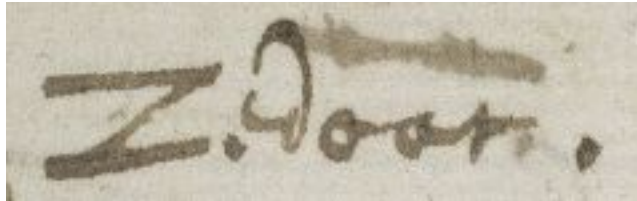 Z. door.